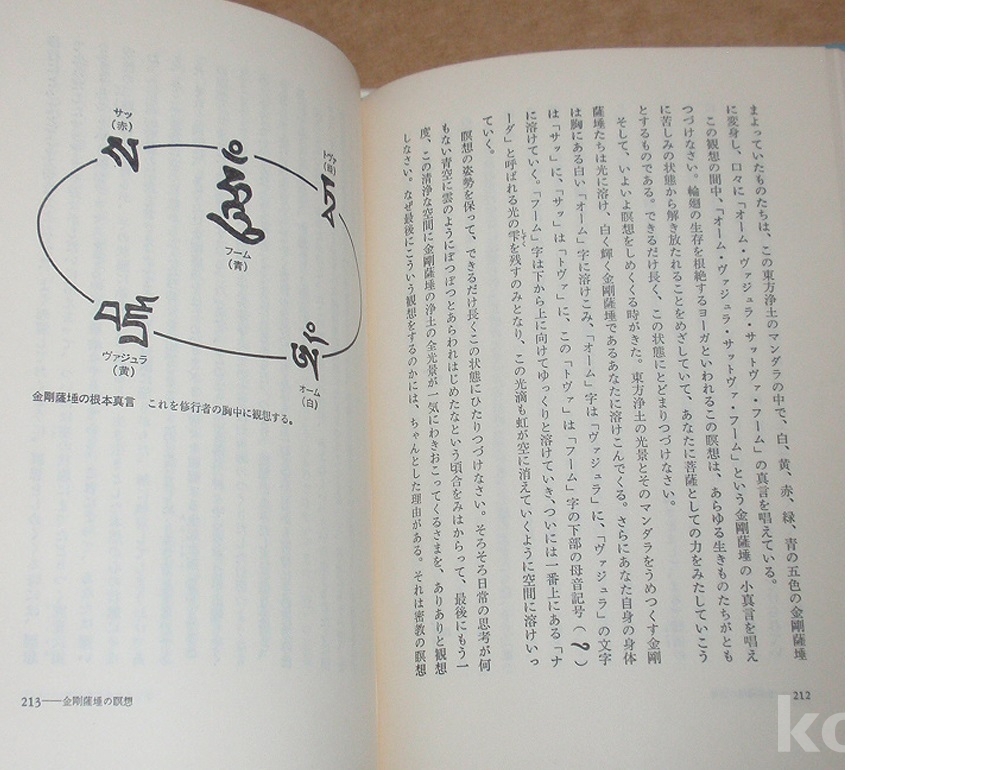 まよっていたものたちは、この東方浄土のマンダラの中で、白、黄、赤、緑、青の五色の金剛薩埵
に変身し、口々に「オーム・ヴァジュラ・サットヴァ・フーム」の真言を唱えている。
この観想の間中、「オーム・ヴァジュラ・サットヴァ・フーム」という金剛薩埵の小真言を唱え
つづけなさい。輪廻の生存を根絶するヨーガといわれるこの瞑想は、あらゆる生きものたちがとも
に苦しみの状態から解き放たれることをめざしていて、あなたに菩薩としての力をみたしていこう
とするものである。できるだけ長く、この状態にとどまりつづけなさい。
そして、いよいよ瞑想をしめくくる時がきた。東方浄土の光景とそのマンダラをうめつくす金剛
薩埵たちは光に溶け、白く輝く金剛薩埵であるあなたに溶けこんでくる。さらにあなた自身の身体
は胸にある白い「オーム」字に溶けこみ、「オーム」字は「ヴァジュラ」に、「ヴァジュラ」の文字
は「サッ」に、「サッ」は「トヴァ」に、この「トヴァ」は「フーム」字の下部の母音記号（ ）
に溶けていく。「フーム」字は下から上に向けてゆっくりと溶けていき、ついには一番上にある「ナ
ーダ」と呼ばれる光の雫を残すのみとなり、この光滴も虹が空に消えていくように空間に溶けいっ
しずく
ていく。
瞑想の姿勢を保って、できるだけ長くこの状態にひたりつづけなさい。そろそろ日常の思考が何
もない青空に雲のようにぽつぽつとあらわれはじめたなという頃合をみはからって、最後にもう一
度、この清浄な空間に金剛薩埵の浄土の全光景が一気にわきおこってくるさまを、ありありと観想
しなさい。なぜ最後にこういう観想をするのかには、ちゃんとした理由がある。それは密教の瞑想
212
サッ
（赤）
フーム
（青）
ヴァジュラ
（黄）
オーム
（白）
金剛薩埵の根本真言 これを修行者の胸中に観想する。
213──金剛薩埵の瞑想